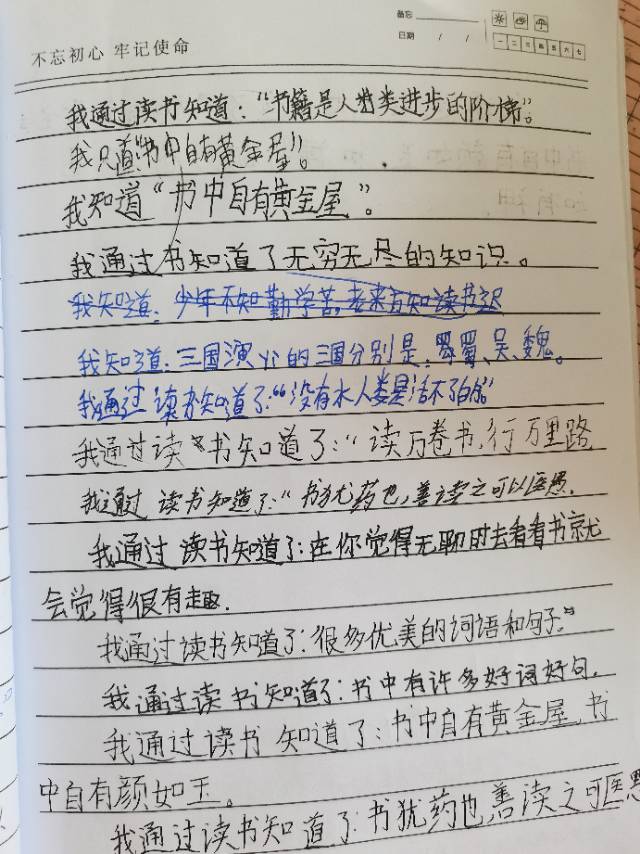 不忘初心 牢记使命
备忘
日期 / /
一 二 三 四 五 六 七
我通过读书知道：“书籍是人类进步的阶梯”。
我只道“书中自有黄金屋”。
我知道“书中自有黄金屋”。
我通过书知道了无穷无尽的知识。
我知道：少年不知勤学苦，老来方知读书迟
我知道：三国演义的三国分别是：蜀、吴、魏。
我通过读书知道了：“没有水人类是活不了的”
我通过读书知道了：“读万卷书，行万里路
我通过读书知道了：“书犹药也，善读之可以医愚.
我通过读书知道了：在你觉得无聊时去看看书就
会觉得很有趣.
我通过读书知道了：很多优美的词语和句子.”
我通过读书知道了：书中有许多好词好句.
我通过读书知道了：书中自有黄金屋，书
中自有颜如玉。
我通过读书知道了：书犹药也善读之可医愚